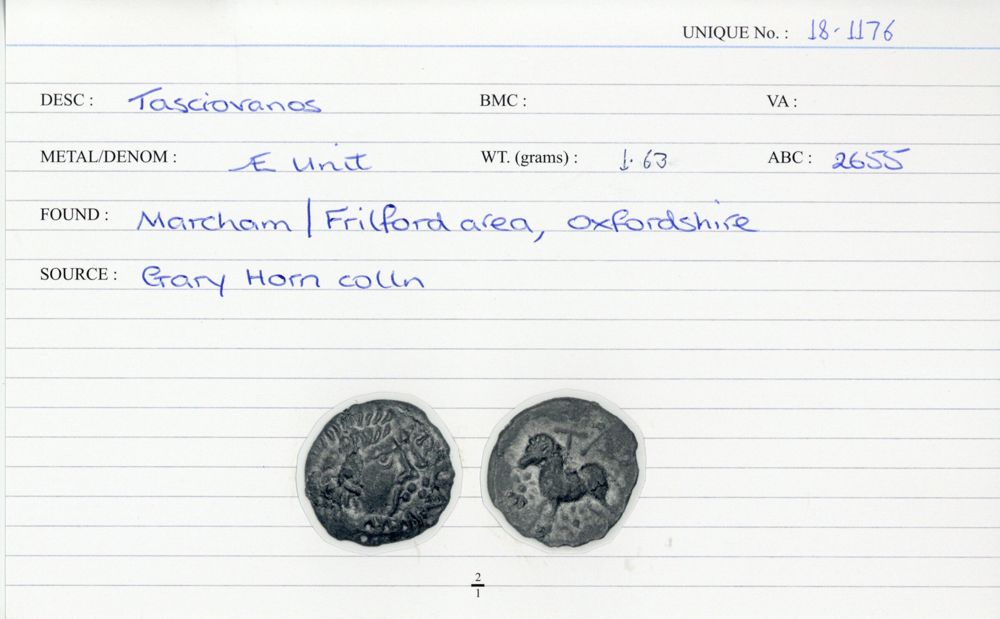 UNIQUE No. : 18-1176
DESC : Tasciovanos BMC : VA :
METAL/DENOM : Æ Unit WT. (grams) : 1.63 ABC : 2655
FOUND : Marcham / Frilford area, Oxfordshire
SOURCE : Gary Horn colln
2
1